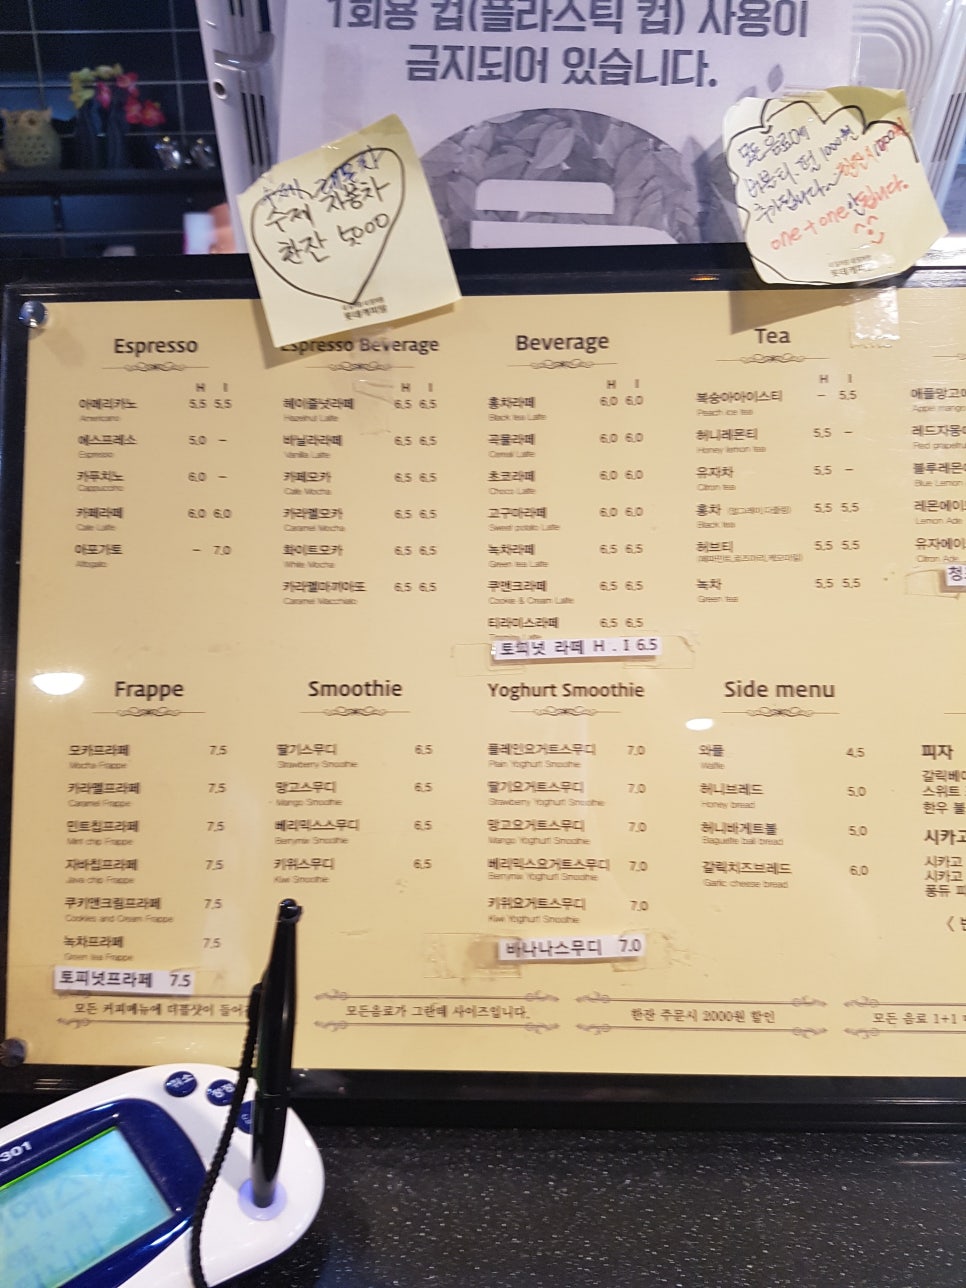 1회용 컵(플라스틱 컵) 사용이
금지되어 있습니다.
수제 레몬차
수제 자몽차
한잔 5000
롯데캐피탈
모든음료에
추가됩니다~
one + one 안됩니다.
롯데캐피탈
Espresso
H I
아메리카노 5,5 5,5
Americano
에스프레소 5,0 –
Espresso
카푸치노 6,0 –
Cappuccino
카페라떼 6,0 6,0
Cafe Latte
아포가토 – 7,0
Affogato
Espresso Beverage
H I
헤이즐넛라떼 6,5 6,5
Hazelnut Latte
바닐라라떼 6,5 6,5
Vanilla Latte
카페모카 6,5 6,5
Cafe Mocha
카라멜모카 6,5 6,5
Caramel Mocha
화이트모카 6,5 6,5
White Mocha
카라멜마끼아또 6,5 6,5
Caramel Macchiato
Beverage
H I
홍차라떼 6,0 6,0
Black tea Latte
곡물라떼 6,0 6,0
Cereal Latte
초코라떼 6,0 6,0
Choco Latte
고구마라떼 6,0 6,0
Sweet potato Latte
녹차라떼 6,5 6,5
Green tea Latte
쿠앤크라떼 6,5 6,5
Cookie & Cream Latte
티라미스라떼 6,5 6,5
토피넛 라떼 H . I 6.5
Tea
H I
복숭아아이스티 – 5,5
Peach ice tea
허니레몬티 5,5 –
Honey lemon tea
유자차 5,5 –
Citron tea
홍차 (얼그레이,다즐링) 5,5 5,5
Black tea
허브티 5,5 5,5
(페퍼민트,로즈마리,케모마일)
녹차 5,5 5,5
Green tea
애플망고에
Appel mango
레드자몽에
Red grapefru
블루레몬에
Blue Lemon
레몬에이드
Lemon Ade
유자에이드
Citron Ade
청
Frappe
모카프라페 7,5
Mocha Frappe
카라멜프라페 7,5
Caramel Frappe
민트칩프라페 7,5
Mint chip Frappe
자바칩프라페 7,5
Java chip Frappe
쿠키앤크림프라페 7,5
Cookies and Cream Frappe
녹차프라페 7,5
Green tea Frappe
토피넛프라페 7.5
Smoothie
딸기스무디 6,5
Strawberry Smoothie
망고스무디 6,5
Mango Smoothie
베리믹스스무디 6,5
Berrymix Smoothie
키위스무디 6,5
Kiwi Smoothie
Yoghurt Smoothie
플레인요거트스무디 7,0
Plain Yoghurt Smoothie
딸기요거트스무디 7,0
Strawberry Yoghurt Smoothie
망고요거트스무디 7,0
Mango Yoghurt Smoothie
베리믹스요거트스무디 7,0
Berrymix Yoghurt Smoothie
키위요거트스무디 7,0
Kiwi Yoghurt Smoothie
바나나스무디 7.0
Side menu
와플 4,5
Waffle
허니브레드 5,0
Honey bread
허니바게트볼 5,0
Baguette ball bread
갈릭치즈브레드 6,0
Garlic cheese bread
피자
갈릭베이
스위트
한우 불
시카고
시카고
시카고
퐁듀 피
모든 커피메뉴에 더블샷이 들어
모든음료가 그란데 사이즈입니다.
한잔 주문시 2000원 할인
모든 음료 1+1
취소
정정
301